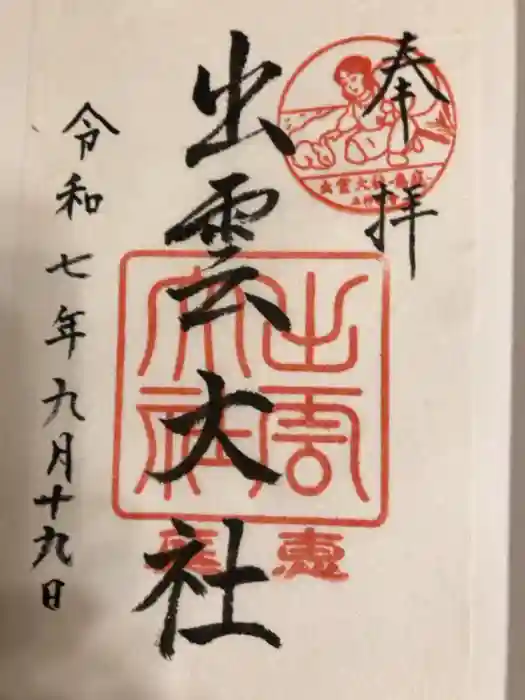 奉拝
出雲大社
令和七年九月十九日
出雲大社